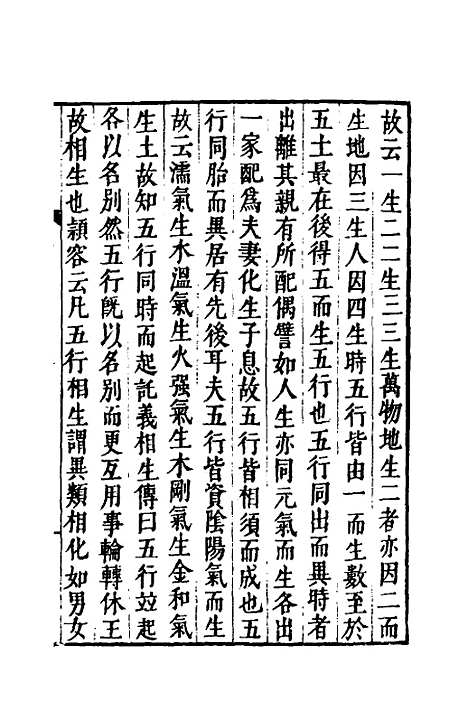 故云一生二二生三三生萬物地生二者亦因二而
生地因三生人因四生時五行皆由一而生數至於
五土最在後得五而生五行也五行同出而異時者
出離其親有所配偶譬如人生亦同元氣而生各出
一家配爲夫妻化生子息故五行皆相須而成也五
行同胎而異居有先後耳夫五行皆資陰陽氣而生
故云濡氣生木溫氣生火强氣生木剛氣生金和氣
生土故知五行同時而起託義相生傳曰五行竝起
各以名別然五行旣以名別而更互用事輪轉休王
故相生也穎容云凡五行相生謂異類相化如男女